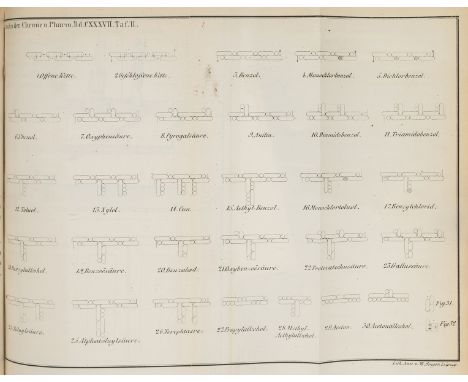 Chemie u. Pharm. Bd. CXXXVII. Taf. II.
1. Offene Kette.
2. Geschlossene Kette.
3. Benzol.
4. Monochlorbenzol.
5. Dichlorbenzol.
7. Oxyphensäure.
8. Pyrogallsäure.
9. Anilin.
10. Diamidobenzol.
11. Triamidobenzol.
12. Toluol.
13. Xylol.
14. Cum.
15. Aethyl-Benzol.
16. Monochlortoluol.
17. Benzylchlorid.
19. Benzoësäure.
20. Benzaldeh.
21. Oxybenzoësäure.
22. Protocatechusäure.
23. Gallussäure.
25. Alphatoluylsäure.
26. Terephtalsre.
27. Propylalkohol.
28. Methyl-
Aethylalkohol.
29. Aceton.
30. Acetonalkohol.
Fig. 31.
Fig. 32